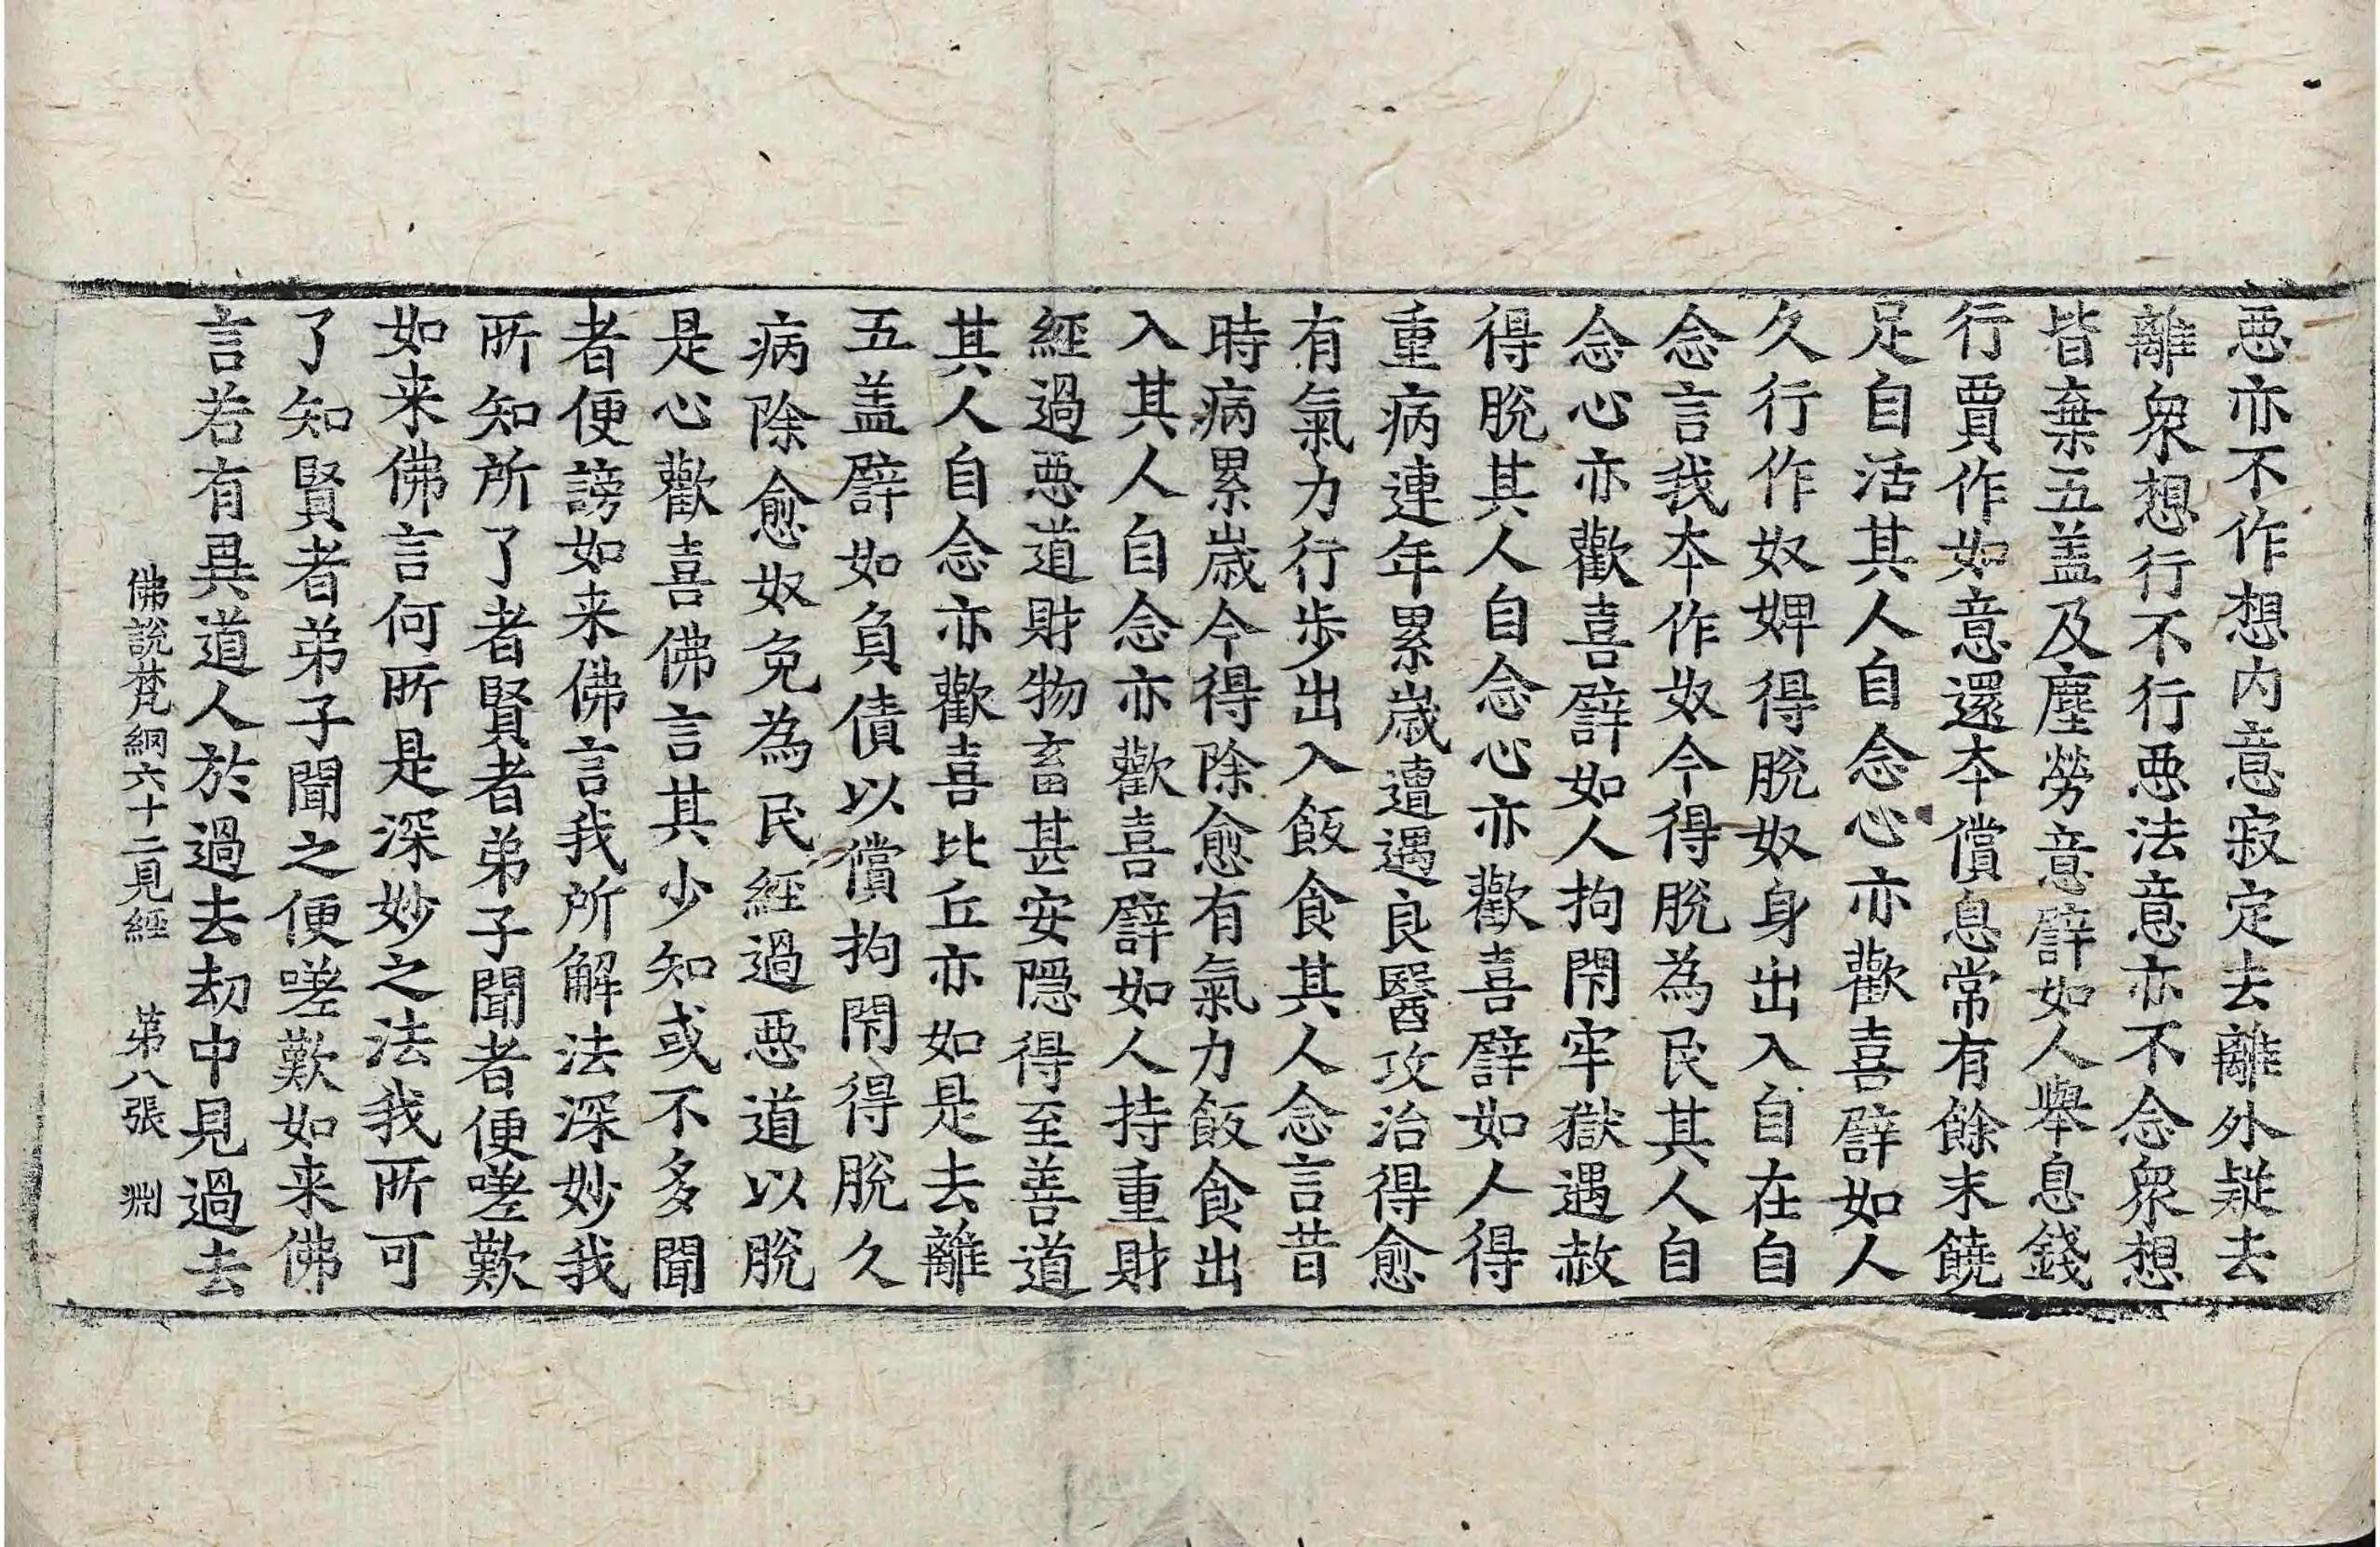 悪亦不作想内意寂定去離外疑去
離衆想行不行悪法意亦不念衆想
皆棄五盖及塵勞意譬如人舉息錢
行賈作如意還夲償息常有餘末饒
足自活其人自念心亦歡喜譬如人
久行作奴婢得脫奴身出入自在自
念言我夲作奴今得脫為民其人自
念心亦歡喜譬如人拘閇牢獄遇赦
得脫其人自念心亦歡喜譬如人得
重病連年累歳遭遇良醫攻治得愈
有氣力行步出入飯食其人念言昔
時病累歳今得除愈有氣力飯食出
入其人自念亦歡喜譬如人持重財
經過悪道財物畜甚安隱得至善道
其人自念亦歡喜比丘亦如是去離
五盖譬如負債以償拘閇得脫久
病除愈奴免為民經過悪道以脫
是心歡喜佛言其少知或不多聞
者便謗如来佛言我所解法深妙我
所知所了者賢者弟子聞者便嗟歎
如来佛言何所是深妙之法我所可
了知賢者弟子聞之便嗟歎如来佛
言若有異道人於過去劫中見過去
佛說梵網六十二見經　第八張　渊